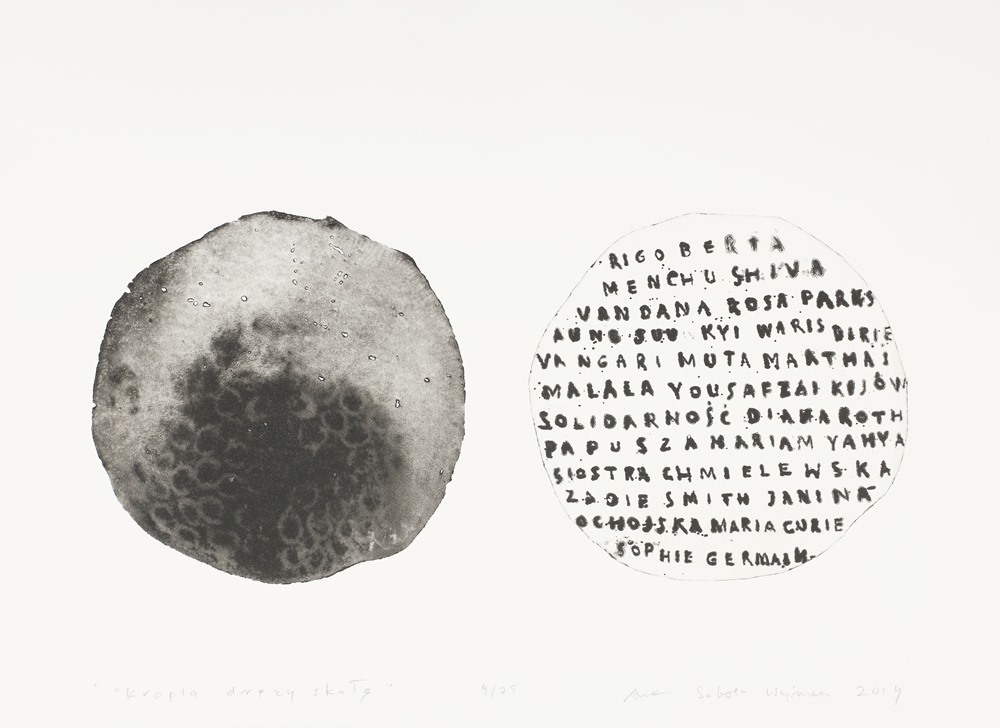 RIGOBERTA
MENCHU SHIVA
VANDANA ROSA PARKS
AUNG SUU KYI WARIS DIRIE
VANGARI MUTA MAATHAI
MALALA YOUSAFZAI KIJÓW
SOLIDARNOŚĆ DIANA ROTH
PAPUSZA MARIAM YAHYA
SIOSTRA CHMIELEWSKA
ZADIE SMITH JANINA
OCHOJSKA MARIA CURIE
SOPHIE GERMAIN
"Kropla drąży skałę" 4/25 2014